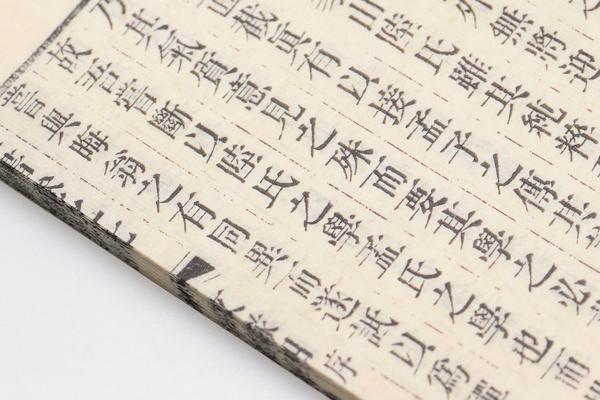 外無將迎
山陸氏雖其純粹
直截真有以接孟子之傳其
乃其氣質意見之殊而要其學之必
故吾嘗斷以陸氏之學孟氏之學也而
嘗與晦翁之有同異而遂詆以為禪
序